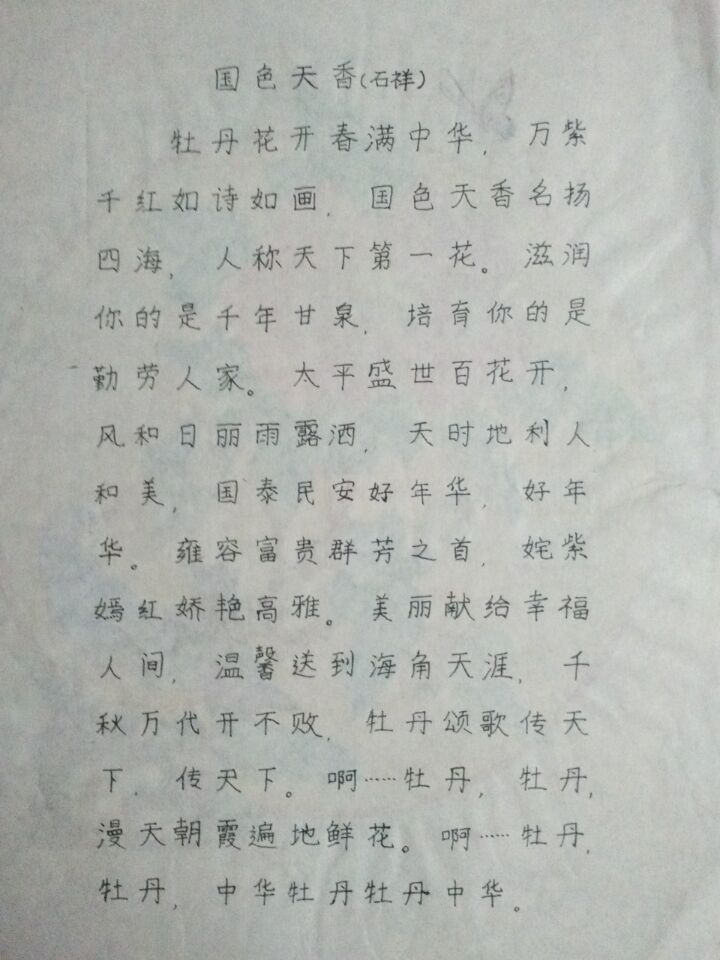 国色天香(石祥)
牡丹花开春满中华，万紫
千红如诗如画，国色天香名扬
四海，人称天下第一花。滋润
你的是千年甘泉，培育你的是
勤劳人家。太平盛世百花开，
风和日丽雨露洒，天时地利人
和美，国泰民安好年华，好年
华。雍容富贵群芳之首，姹紫
嫣红娇艳高雅。美丽献给幸福
人间，温馨送到海角天涯，千
秋万代开不败，牡丹颂歌传天
下，传天下。啊……牡丹，牡丹，
漫天朝霞遍地鲜花。啊……牡丹，
牡丹，中华牡丹牡丹中华。